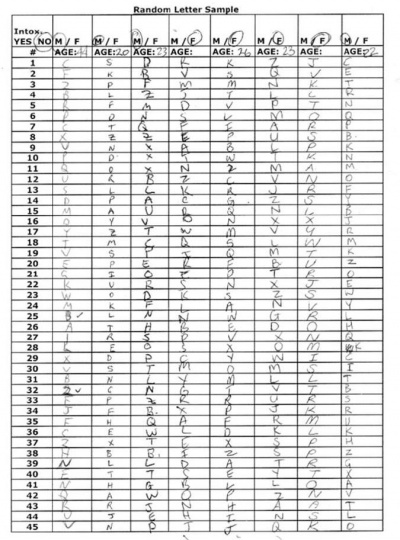 Random Letter Sample
Intox. M / F M / F M / F M / F M / F M / F M / F M / F
YES NO
# AGE: AGE: 20 AGE: 23 AGE: AGE: 26 AGE: 23 AGE: AGE: 22
1 C S D K K Z J C
2 F K B V S Q V E
3 Z P F M M N K T
4 R L Z S T L L R
5 R F M D V P T N
6 P D N S V M O Q
7 C T Q F I A R P
8 X Z Z E P U S B.
9 V N X B L P K
10 P D X W T K N
11 Q O X N 2 M A M
12 U R R Z C V N O
13 S L L K R J R F
14 D P A C G Z S Y
15 M A U B Q N L B
16 O Y V O N X X J
17 Y Z T W M V Y R
18 T M C Q S L W M
19 V S P Q M T K
20 E P E R E B U Z
21 C I O T D T R O
22 K V R S N X J E
23 W O D K S Z S W
24 M K F L A N V Y
25 B L N N W G R L
26 A T H B E D O H
27 I R S P V X N Q
28 L E O S X O M K
29 X D P C Y W I C
30 V S T M O M S I
31 B N L Y M L L T
32 2 C N G V T B
33 F P Z R R U R S
34 J F B. X P J K R
35 F H Q A F R M U
36 C E W L D K L K
37 Z X T E X S P H
38 H B B. I Z S P Z
39 N L L D A T R G
40 E T T S E Y T X
41 N H G B L L Q A
42 Q A W O P Z N V
43 R R J N H A A T
44 U J E H I N S L
45 V N P T J Q K O